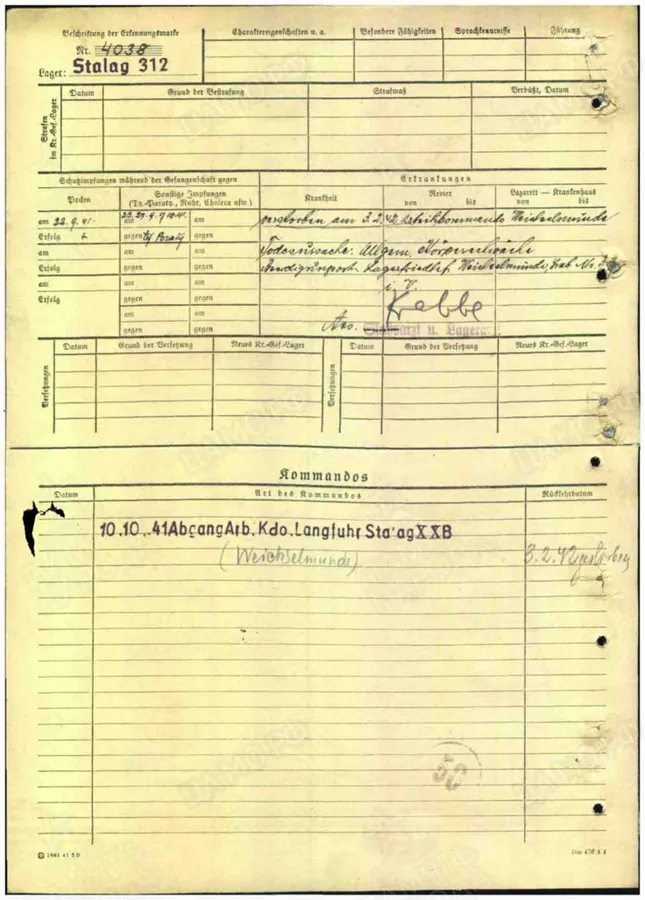 Beschriftung der Erkennungsmarke
Nr. 4038
Lager: Stalag 312
Charaktereigenschaften u. a.
Besondere Fähigkeiten
Sprachkenntnisse
Führung
Strafen im Kr.-Gef.-Lager
Datum
Grund der Bestrafung
Strafmaß
Verbüßt, Datum
Schutzimpfungen während der Gefangenschaft gegen
Erkrankungen
Pocken
Sonstige Impfungen
(Ty.-Paraty., Ruhr, Cholera usw.)
Krankheit
Revier
von bis
Lazarett — Krankenhaus
von bis
am 22.9.41. am am
Erfolg + gegen Ty Paraty gegen
am am am
Erfolg gegen gegen
am am am
Erfolg gegen gegen
am am
gegen gegen
verstorben am 3.2.42, Weichselmünde
Todesursache: Allgem. Körperschwäche
Lagerfriedhof Weichselmünde, Grab Nr.
i. V.
Krebbe
u. Lagera
Versetzungen
Datum
Grund der Versetzung
Neues Kr.-Gef.-Lager
Versetzungen
Datum
Grund der Versetzung
Neues Kr.-Gef.-Lager
Kommandos
Datum
Art des Kommandos
Rückkehrdatum
10.10..41 Abgang Arb. Kdo. Langfuhr Stalag XXB
(Weichselmünde)
3.2.42 gestorben
50
1983 41 5 D
Din 476 A 4
ЦАМО РФ